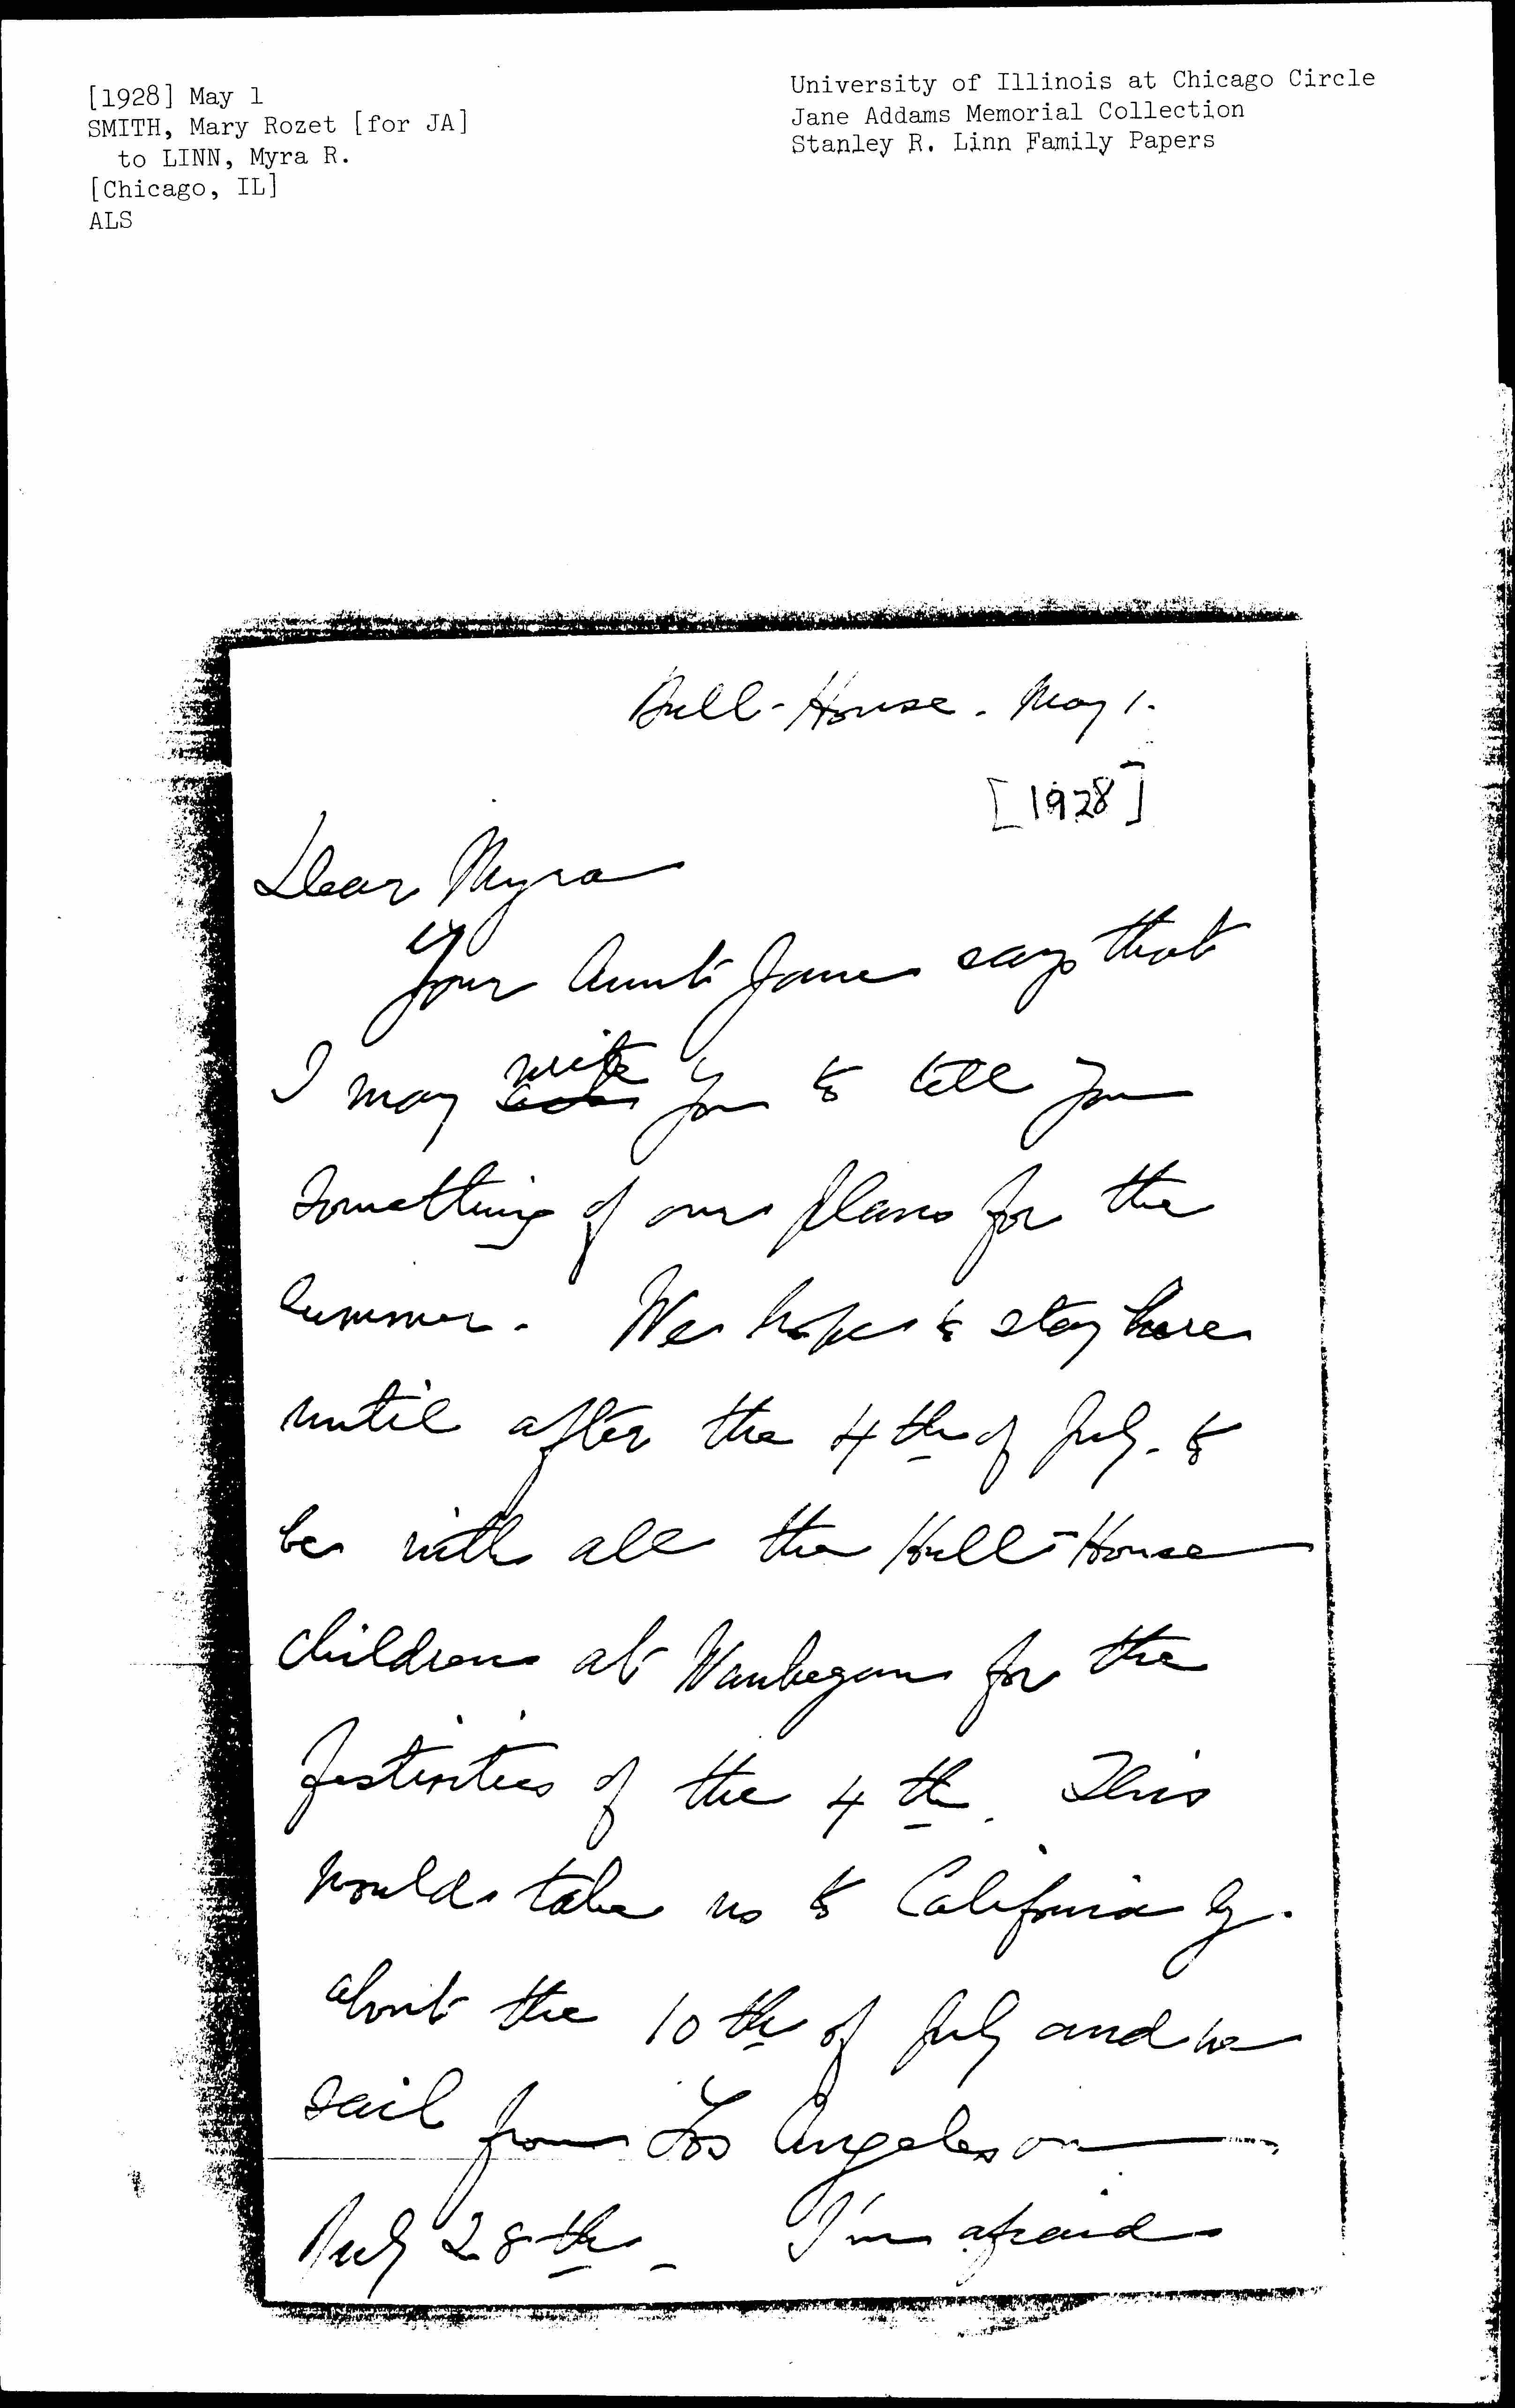 [1928] May 1
SMITH, Mary Rozet [for JA]
to LINN, Myra R.
[Chicago, IL]
ALS
University of Illinois at Chicago Circle
Jane Addams Memorial Collection
Stanley R. Linn Family Papers
Hull-House. May 1.
[1928]
Dear Myra
Your Aunt Jane says that
I may write you to tell you
something of our plans for the
summer. We hope to stay here
until after the 4th of July - to
be with all the Hull-House
children at Waukegan for the
festivities of the 4th. This
would take us to California by
about the 10th of July and we
sail from Los Angeles on
July 28th - I'm afraid